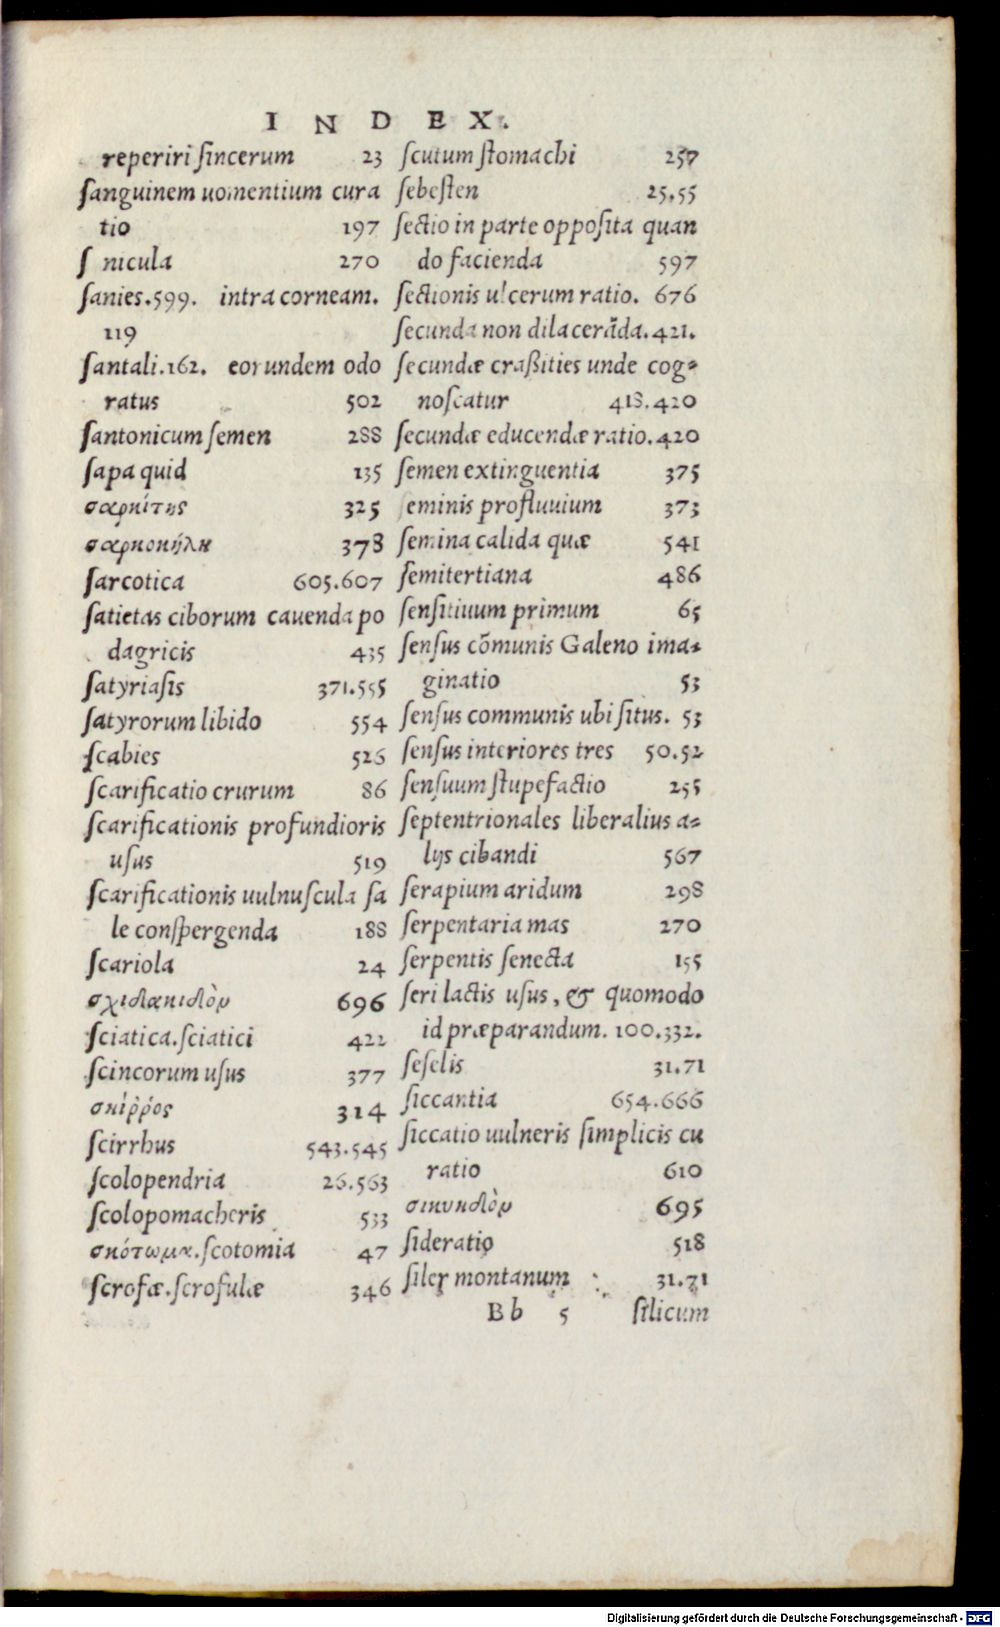 INDEX.
reperiri ſincerum 23
ſanguinem uomentium cura
tio 197
ſ nicula 270
ſanies.599. intra corneam.
119
ſantali.162. eorundem odo
ratus 502
ſantonicum ſemen 288
ſapa quid 135
σαρκίτης 325
σαρκοκήλη 378
ſarcotica 605.607
ſatietas ciborum cauenda po
dagricis 435
ſatyriaſis 371.555
ſatyrorum libido 554
ſcabies 526
ſcarificatio crurum 86
ſcarificationis profundioris
uſus 519
ſcarificationis uulnuſcula ſa
le conſpergenda 188
ſcariola 24
σχιδακιδὸν 696
ſciatica.ſciatici 422
ſcincorum uſus 377
σκίῤῥος 314
ſcirrhus 543.545
ſcolopendria 26.563
ſcolopomacheris 533
σκότωμα.ſcotomia 47
ſcrofæ.ſcrofulæ 346
ſcutum ſtomachi 257
ſebeſten 25.55
ſectio in parte oppoſita quan
do facienda 597
ſectionis ulcerum ratio. 676
ſecunda non dilacerãda.421.
ſecundæ craßities unde cog-
noſcatur 418.420
ſecundæ educendæ ratio.420
ſemen extinguentia 375
ſeminis profluuium 373
ſemina calida quæ 541
ſemitertiana 486
ſenſitiuum primum 65
ſenſus cõmunis Galeno ima-
ginatio 53
ſenſus communis ubi ſitus. 53
ſenſus interiores tres 50.52
ſenſuum ſtupefactio 255
ſeptentrionales liberalius a-
lijs cibandi 567
ſerapium aridum 298
ſerpentaria mas 270
ſerpentis ſenecta 155
ſeri lactis uſus, & quomodo
id præparandum. 100.332.
ſeſelis 31.71
ſiccantia 654.666
ſiccatio uulneris ſimplicis cu
ratio 610
σικυηδὸν 695
ſideratio 518
ſiler montanum 31.71
Bb 5 ſilicum
Digitalisierung gefördert durch die Deutsche Forschungsgemeinschaft - DFG